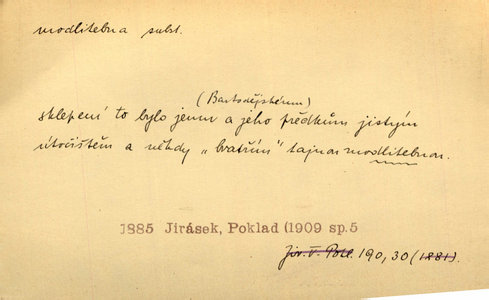 modlitebna subst.
(Bartodějskému)
sklepení to bylo jemu a jeho předkům jistým
útočištěm a někdy „bratřím" tajnou modlitebnou.
1885 Jirásek, Poklad (1909 sp.5
Jir. V. Pokl. 190, 30 (1881).